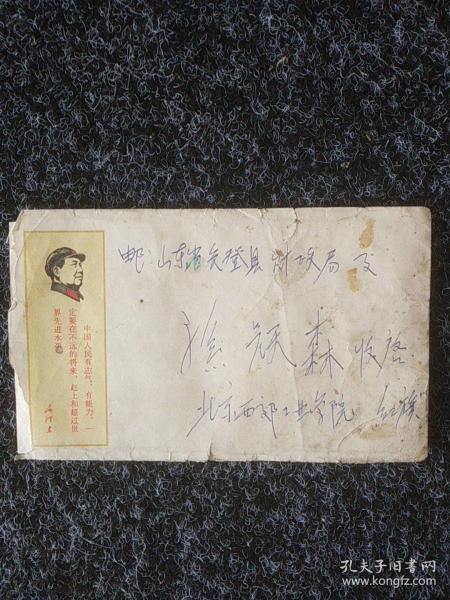 邮:山东省文登县财政局交
徐
森收启
北京西郊工业学院
中国人民有志气,有能力,一
定要在不远的将来,赶上和超过世
界先进水平
毛泽东
孔夫子旧书网
www.kongfz.com